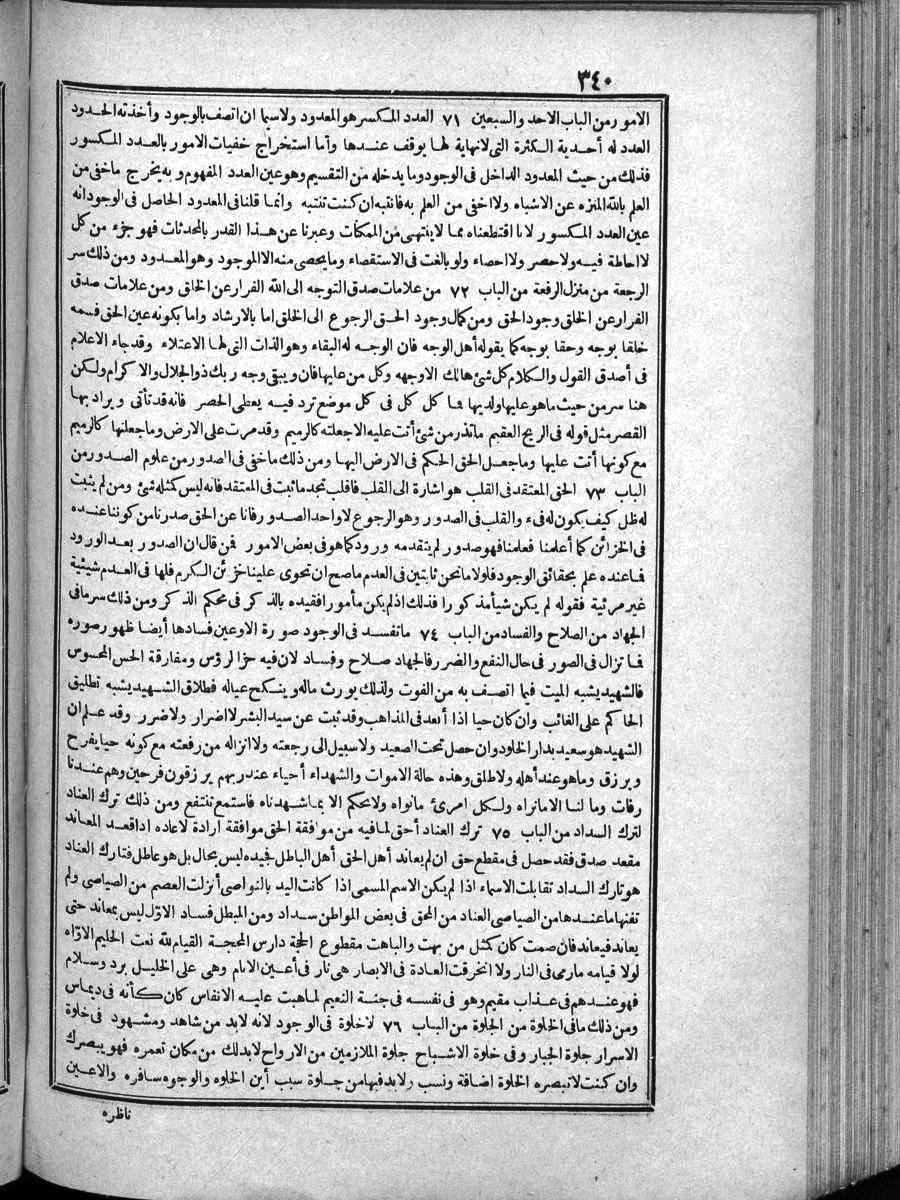 ٣٤٠
الامور من الباب الاحد والسبعين ٧١ العدد المكسر هو المعدود ولا سيما ان اتصف بالوجود وأخذته الحدود
العدد له أحدية الكثرة التى لانهاية لها يوقف عندها وأما استخراج خفيات الامور بالعدد المكسور
فذلك من حيث المعدود الداخل فى الوجود وما يدخله من التقسيم وهو عين العدد المفهوم و به يخرج ماخفى من
العلم بالله المنزه عن الاشباه ولا اخفى من العلم به فانتبه ان كنت تنتبه وانما قلنا فى المعدود الحاصل فى الوجود انه
عين العدد المكسور لانا اقتطعناه مما لايتهى من الممكنات وعبرنا عن هذا القدر بالمحدثات فهو جزء من كل
لا احاطة فيه ولا حصر ولا احصاء ولو بالغت فى الاستقصاء وما يحصى منه الا الموجود وهو المعدود ومن ذلك سر
الرجعة من منزل الرفعة من الباب ٧٢ من علامات صدق التوجه الى الله الفرار عن الخلق ومن علامات صدق
الفرار عن الخلق وجود الحق ومن كمال وجود الحق الرجوع الى الخلق اما بالارشاد واما بكونه عين الحق فسمه
خلقا بوجه وحقا بوجه كما يقوله أهل الوجه فان الوجه له البقاء وهو الذات التى لها الاعتلاء وقد جاء الاعلام
فى أصدق القول والكلام كل شئ هالك الا وجهه وكل من عليها فان ويبقى وجه ربك ذو الجلال والاكرام ولكن
هنا سر من حيث ما هو عليها ولديها فما كل كل فى كل موضع ترد فيه يعطى الحصر فانه قد تأتى ويراد بها
القصر مثل قوله فى الريح العقيم ماتذر من شئ أتت عليه الا جعلته كالرميم وقد مرت على الارض وما جعلتها كالرميم
مع كونها أتت عليها وما جعل الحق الحكم فى الارض اليها ومن ذلك ماخفى فى الصدور من علوم الصدور من
الباب ٧٣ الحق المعتقد فى القلب هو اشارة الى القلب فاقلب تجد ما ثبت فى المعتقد فانه ليس كمثله شئ ومن لم يثبت
له ظل كيف يكون له فىء والقلب فى الصدور وهو الرجوع لا واحد الصدور فانا عن الحق صدرنا من كوننا عنده
فى الخزائن كما أعلمنا فعلمنا فهو صدور لم يتقدمه ورود كما هو فى بعض الامور فمن قال ان الصدور بعد الورود
فما عنده علم بحقائق الوجود فلولا ما نحن ثابتين فى العدم ما صح ان تحوى علينا خزائن الكرم فلها فى العدم شيئية
غير مرئية فقوله لم يكن شيأ مذكورا فذلك اذ لم يكن مأمورا فقيده بالذكر فى محكم الذكر ومن ذلك سر مافى
الجهاد من الصلاح والفساد من الباب ٧٤ ماتفسد فى الوجود صورة الاوعين فسادها أيضا ظهور صوره
فما تزال فى الصور فى حال النفع والضرر فالجهاد صلاح وفساد لان فيه حز الرؤس ومفارقة الحس المحسوس
فالشهيد يشبه الميت فيما اتصف به من الفوت ولذلك يورث ماله وينكح عياله فطلاق الشهيد يشبه تطليق
الحاكم على الغائب وان كان حيا اذا أبعد فى المذاهب وقد ثبت عن سيد البشر لا اضرار ولا ضرر وقد علم ان
الشهيد هو سعيد بدار الخلود وان حصل تحت الصعيد ولا سبيل الى رجعته ولا انزاله من رفعته مع كونه حيا يفرح
ويرزق وما هو عند أهله ولا طلق وهذه حالة الاموات والشهداء أحياء عند ربهم يرزقون فرحين وهم عندنا
رفات وما لنا الا ماتراه ولكل امرئ مانواه ولا يحكم الا بما شهدناه فاستمع تنتفع ومن ذلك ترك العناد
لترك السداد من الباب ٧٥ ترك العناد أحق لما فيه من موافقة الحق موافقة ارادة لا عاده اذا قعد المعاند
مقعد صدق فقد حصل فى مقطع حق ان لم يعاند أهل الحق أهل الباطل فجيده ليس بحال بل هو عاطل فتارك العناد
هو تارك السداد تقابلت الاسماء اذا لم يكن الاسم المسمى اذا كانت اليد بالنواصى أنزلت العصم من الصياصى ولم
تفنها ما عندها من الصياصى العناد من المحق فى بعض المواطن سداد ومن المبطل فساد الاول ليس بمعاند حتى
يعاند فيعاند فان صمت كان كمثل من بهت والباهت مقطوع الحجة دارس المحجة القيام لله نعت الحليم الاواه
لولا قيامه مارمى فى النار ولا انخرقت العادة فى الابصار هى نار فى أعين الانام وهى على الخليل برد وسلام
فهو عندهم فى عذاب مقيم وهو فى نفسه فى جنة النعيم لما هبت عليه الانفاس كان كأنه فى ديماس
ومن ذلك مافى الخلوة من الجلوة من الباب ٧٦ لاخلوة فى الوجود لانه لابد من شاهد ومشهود فى خلوة
الاسرار جلوة الجبار وفى خلوة الاشباح جلوة الملازمين من الارواح لابد لك من مكان تعمره فهو يبصرك
وان كنت لا تبصره الخلوة اضافة ونسب ولابد فيها من جلوة سبب أين الخلوه والوجوه سافره والاعين
ناظره